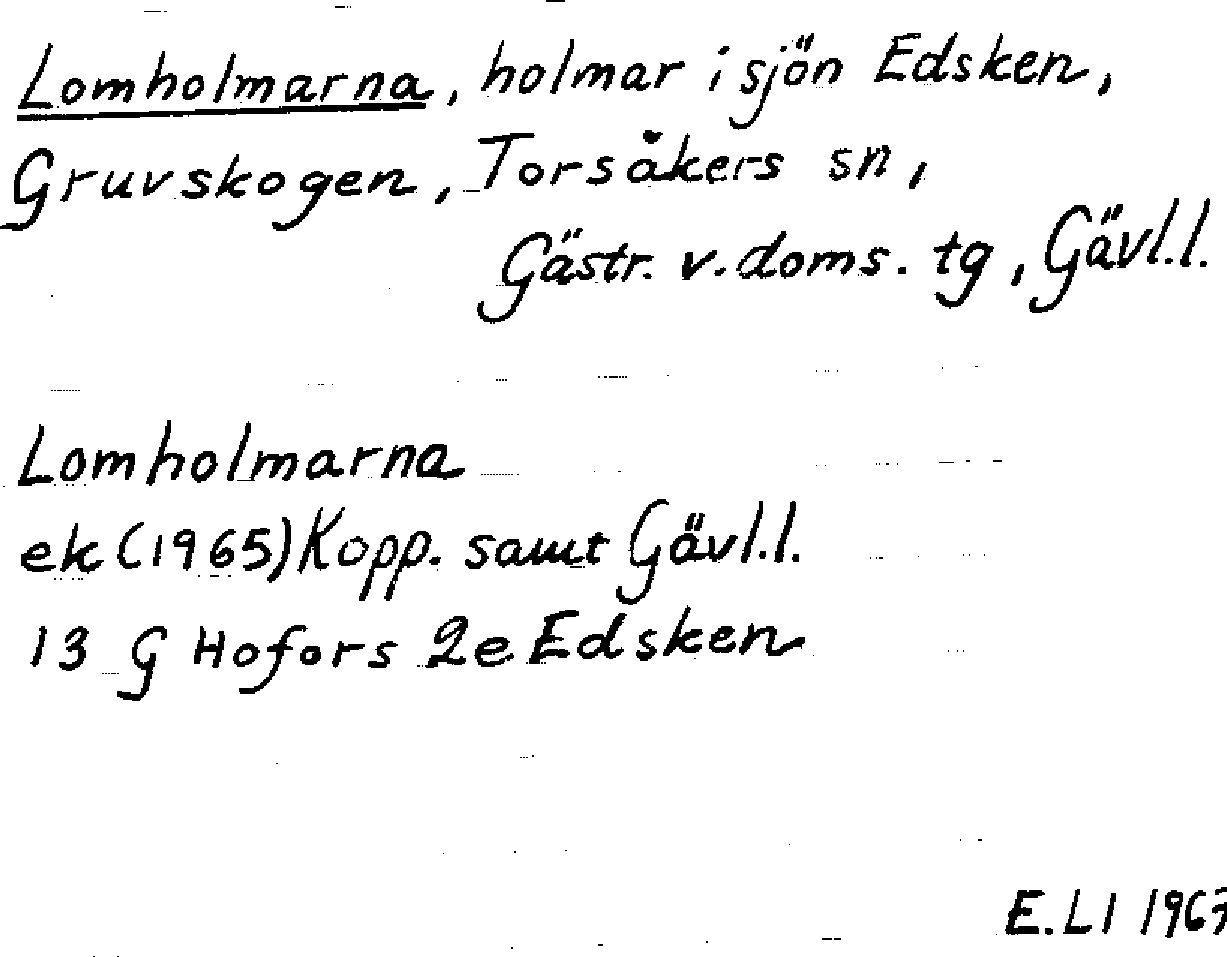 Lomholmarna, holmar i sjön Edsken,
Gruvskogen, Torsåkers sn,
Gästr. v. doms. tg, Gävl.l.
Lomholmarna
ek (1965) Kopp. samt Gävl.l.
13 G Hofors 2e Edsken
E.Ll